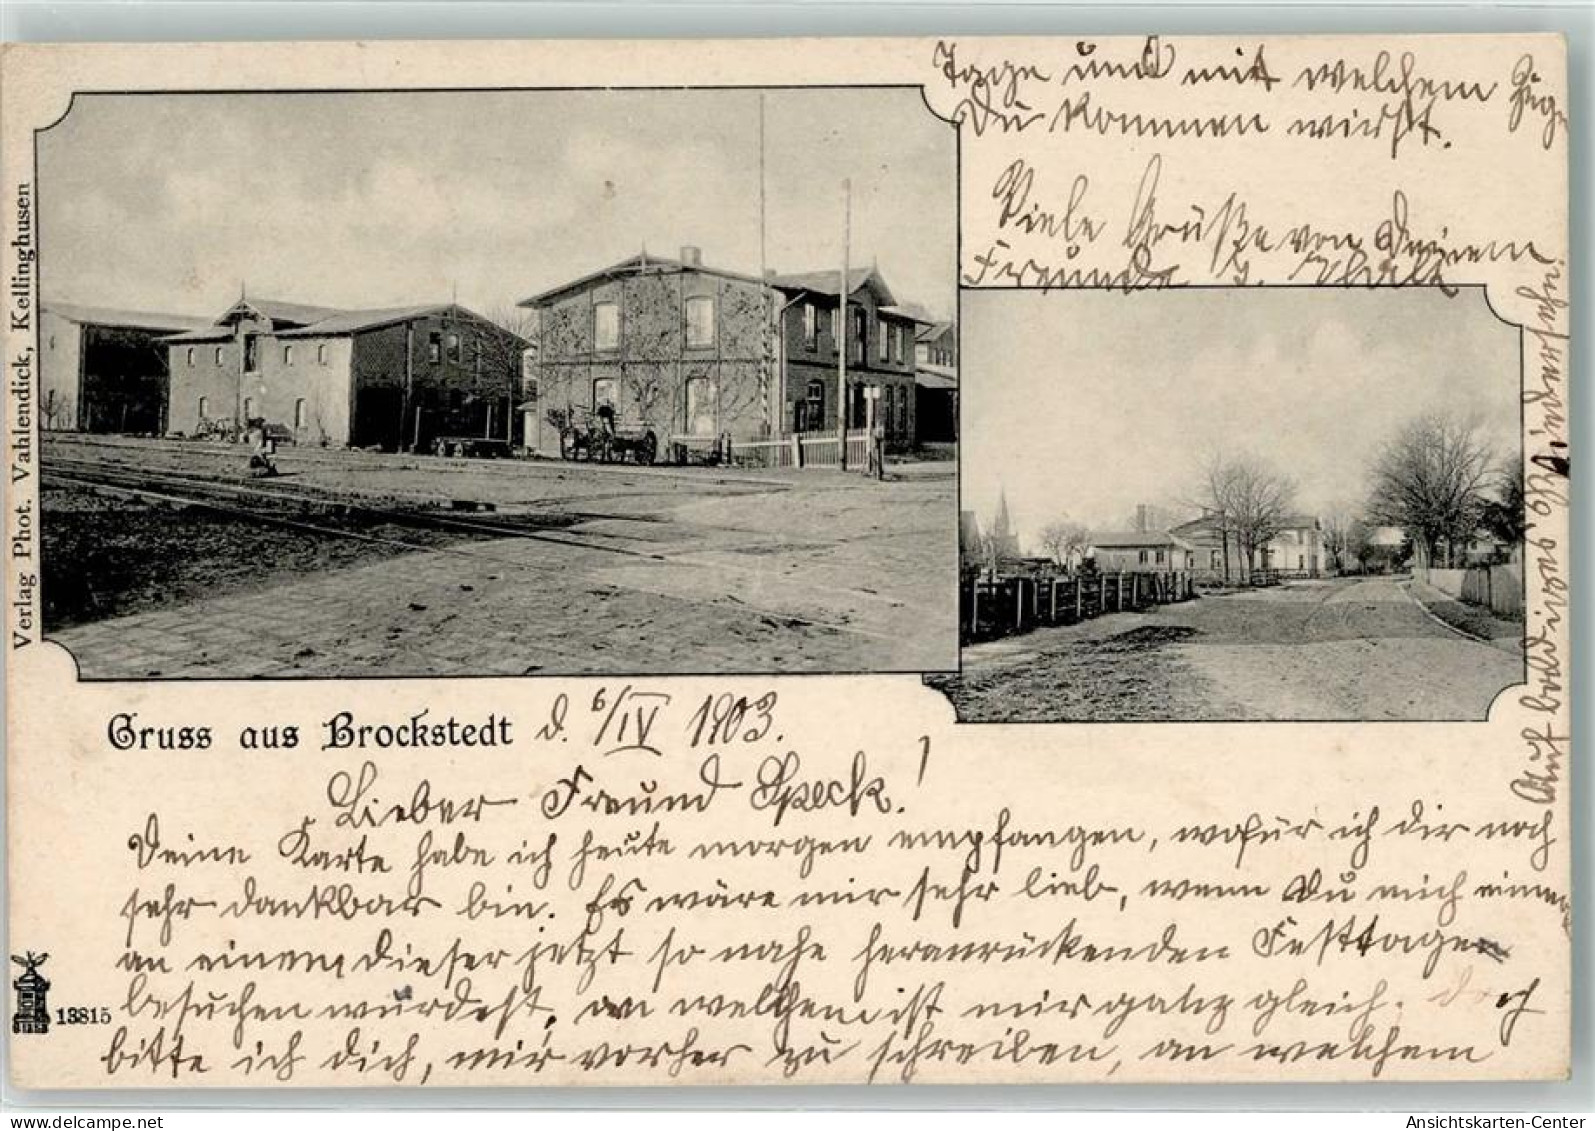 Verlag Phot. Vahlendick, Kellinghusen
Gruss aus Brockstedt d. 6/IV 1903.
Lieber Freund Speck!
Deine Karte habe ich heute morgen empfangen, wofür ich dir noch
sehr dankbar bin. Es wäre mir sehr lieb, wenn Du mich einmal
an einem dieser jetzt so nahe heranrückenden Festtagen
besuchen würdest, an welchem ist mir ganz gleich. Doch
bitte ich dich, mir vorher zu schreiben, an welchem
Tage und mit welchem Zuge
Du kommen wirst.
Viele Grüße von Deinem
Freunde J.
Auf baldiges
13815
delcampe.net
Ansichtskarten-Center